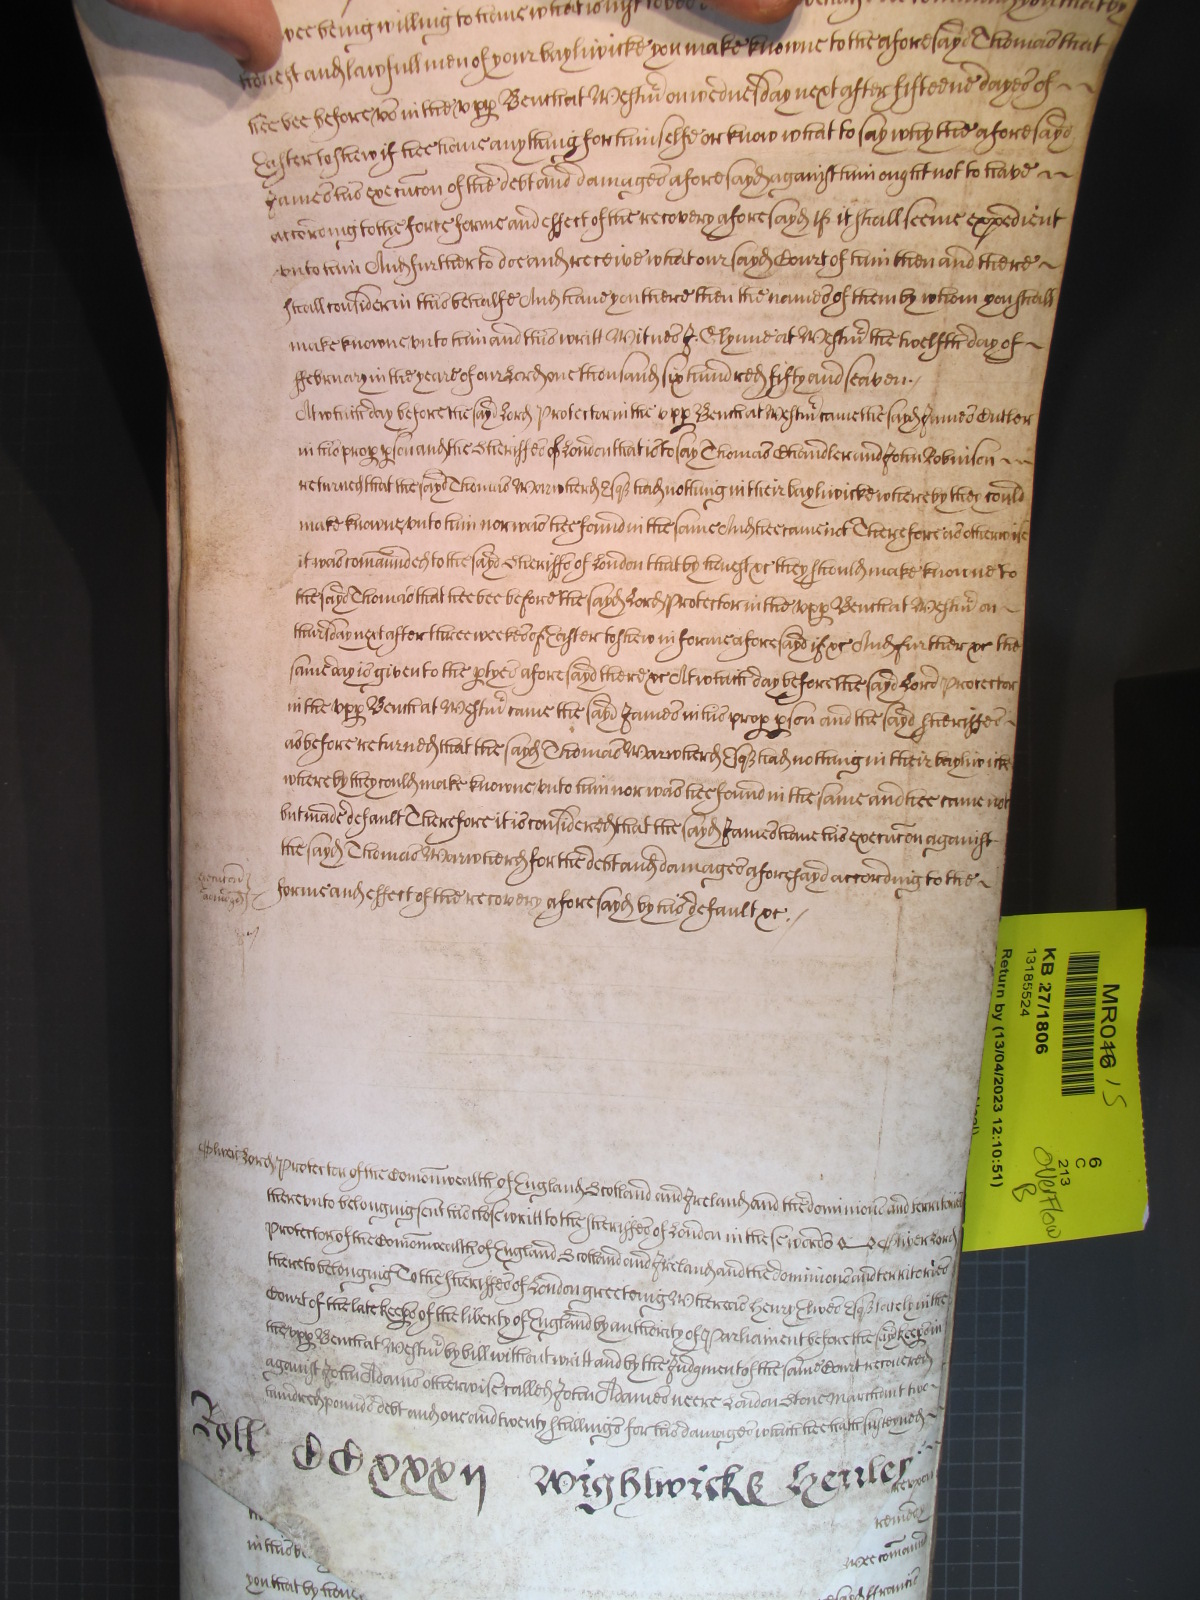 wee being willing to have what is just
honest and lawfull men of your bayliwicke you make knowne to the aforesayd Thomas that
hee bee before us in the upp Bench at Westmr on wednesday next after fifteene dayes of
Easter to shew if hee have anything for himselfe or know what to say why the aforesayd
James his execucon of the debt and damages aforesayd against him ought not to have
according to the force forme and effect of the recovery aforesayd if it shall seeme expedient
unto him And further to doe and receive what our sayd Court of him then and there
shall consider in this behalfe And have you there then the names of them by whom you shall
make knowne unto him and this writt Witnes J. Glynne at Westmr the twelfth day of
ffebruary in the yeare of our Lord one thousand six hundred fifty and seaven.
At which day before the sayd Lord Protector in the upp Bench at Westmr came the sayd James Cutler
in his prop pson and the Sheriffes of London that is to say Thomas Chandler and John Robinson
returned that the sayd Thomas Warwherd Esqr had nothing in their bayliwicke whereby they could
make knowne unto him nor was hee found in the same And hee came not Therefore as otherwise
it was comaunded to the sayd Sheriffs of London that by honest xc they should make knowne to
the sayd Thomas that hee bee before the sayd Lord Protector in the upp Bench at Westmr on
thursday next after three weekes of Easter to shew in forme aforesayd if xc And further xc the
same day is given to the ptyes aforesayd there xc At which day before the sayd Lord Protector
in the upp Bench at Westmr came the sayd James in his prop pson and the sayd Sheriffes
as before returned that the sayd Thomas Warwherd Esqr had nothing in their bayliwicke
whereby they could make knowne unto him nor was hee found in the same and hee came not
but made default Therefore it is considered that the sayd James have his execucon against
the sayd Thomas Warwherd for the debt and damages aforesayd according to the
forme and effect of the recovery aforesayd by his default xc.
Oliver Lord Protector of the Comonwealth of England Scotland and Ireland and the dominions and territories
thereunto belonging sent his close writt to the Sheriffes of London in these words Oliver Lord
Protector of the Comonwealth of England Scotland and Ireland and the dominions and territories
thereto belonging To the Sheriffes of London greeteing Whereas Henry Elwes Esqr lately in the
Court of the late keeps of the liberty of England by authority of Parliament before the sayd keeps in
the upp Bench at Westmr by bill without writt and by the Judgment of the same Court recovered
against John Adams otherwise called John Adams neere London Stone Marchant two
hundred pounds debt and one and twenty shillings for his damages which hee hath susteyned
Roll CCxxxii Wightwicke
wee comand
in this be
you that by hone
MR046 15
KB 27/1806
13185524
Return by (13/04/2023 12:10:51)
6
C
213
Overflow
B